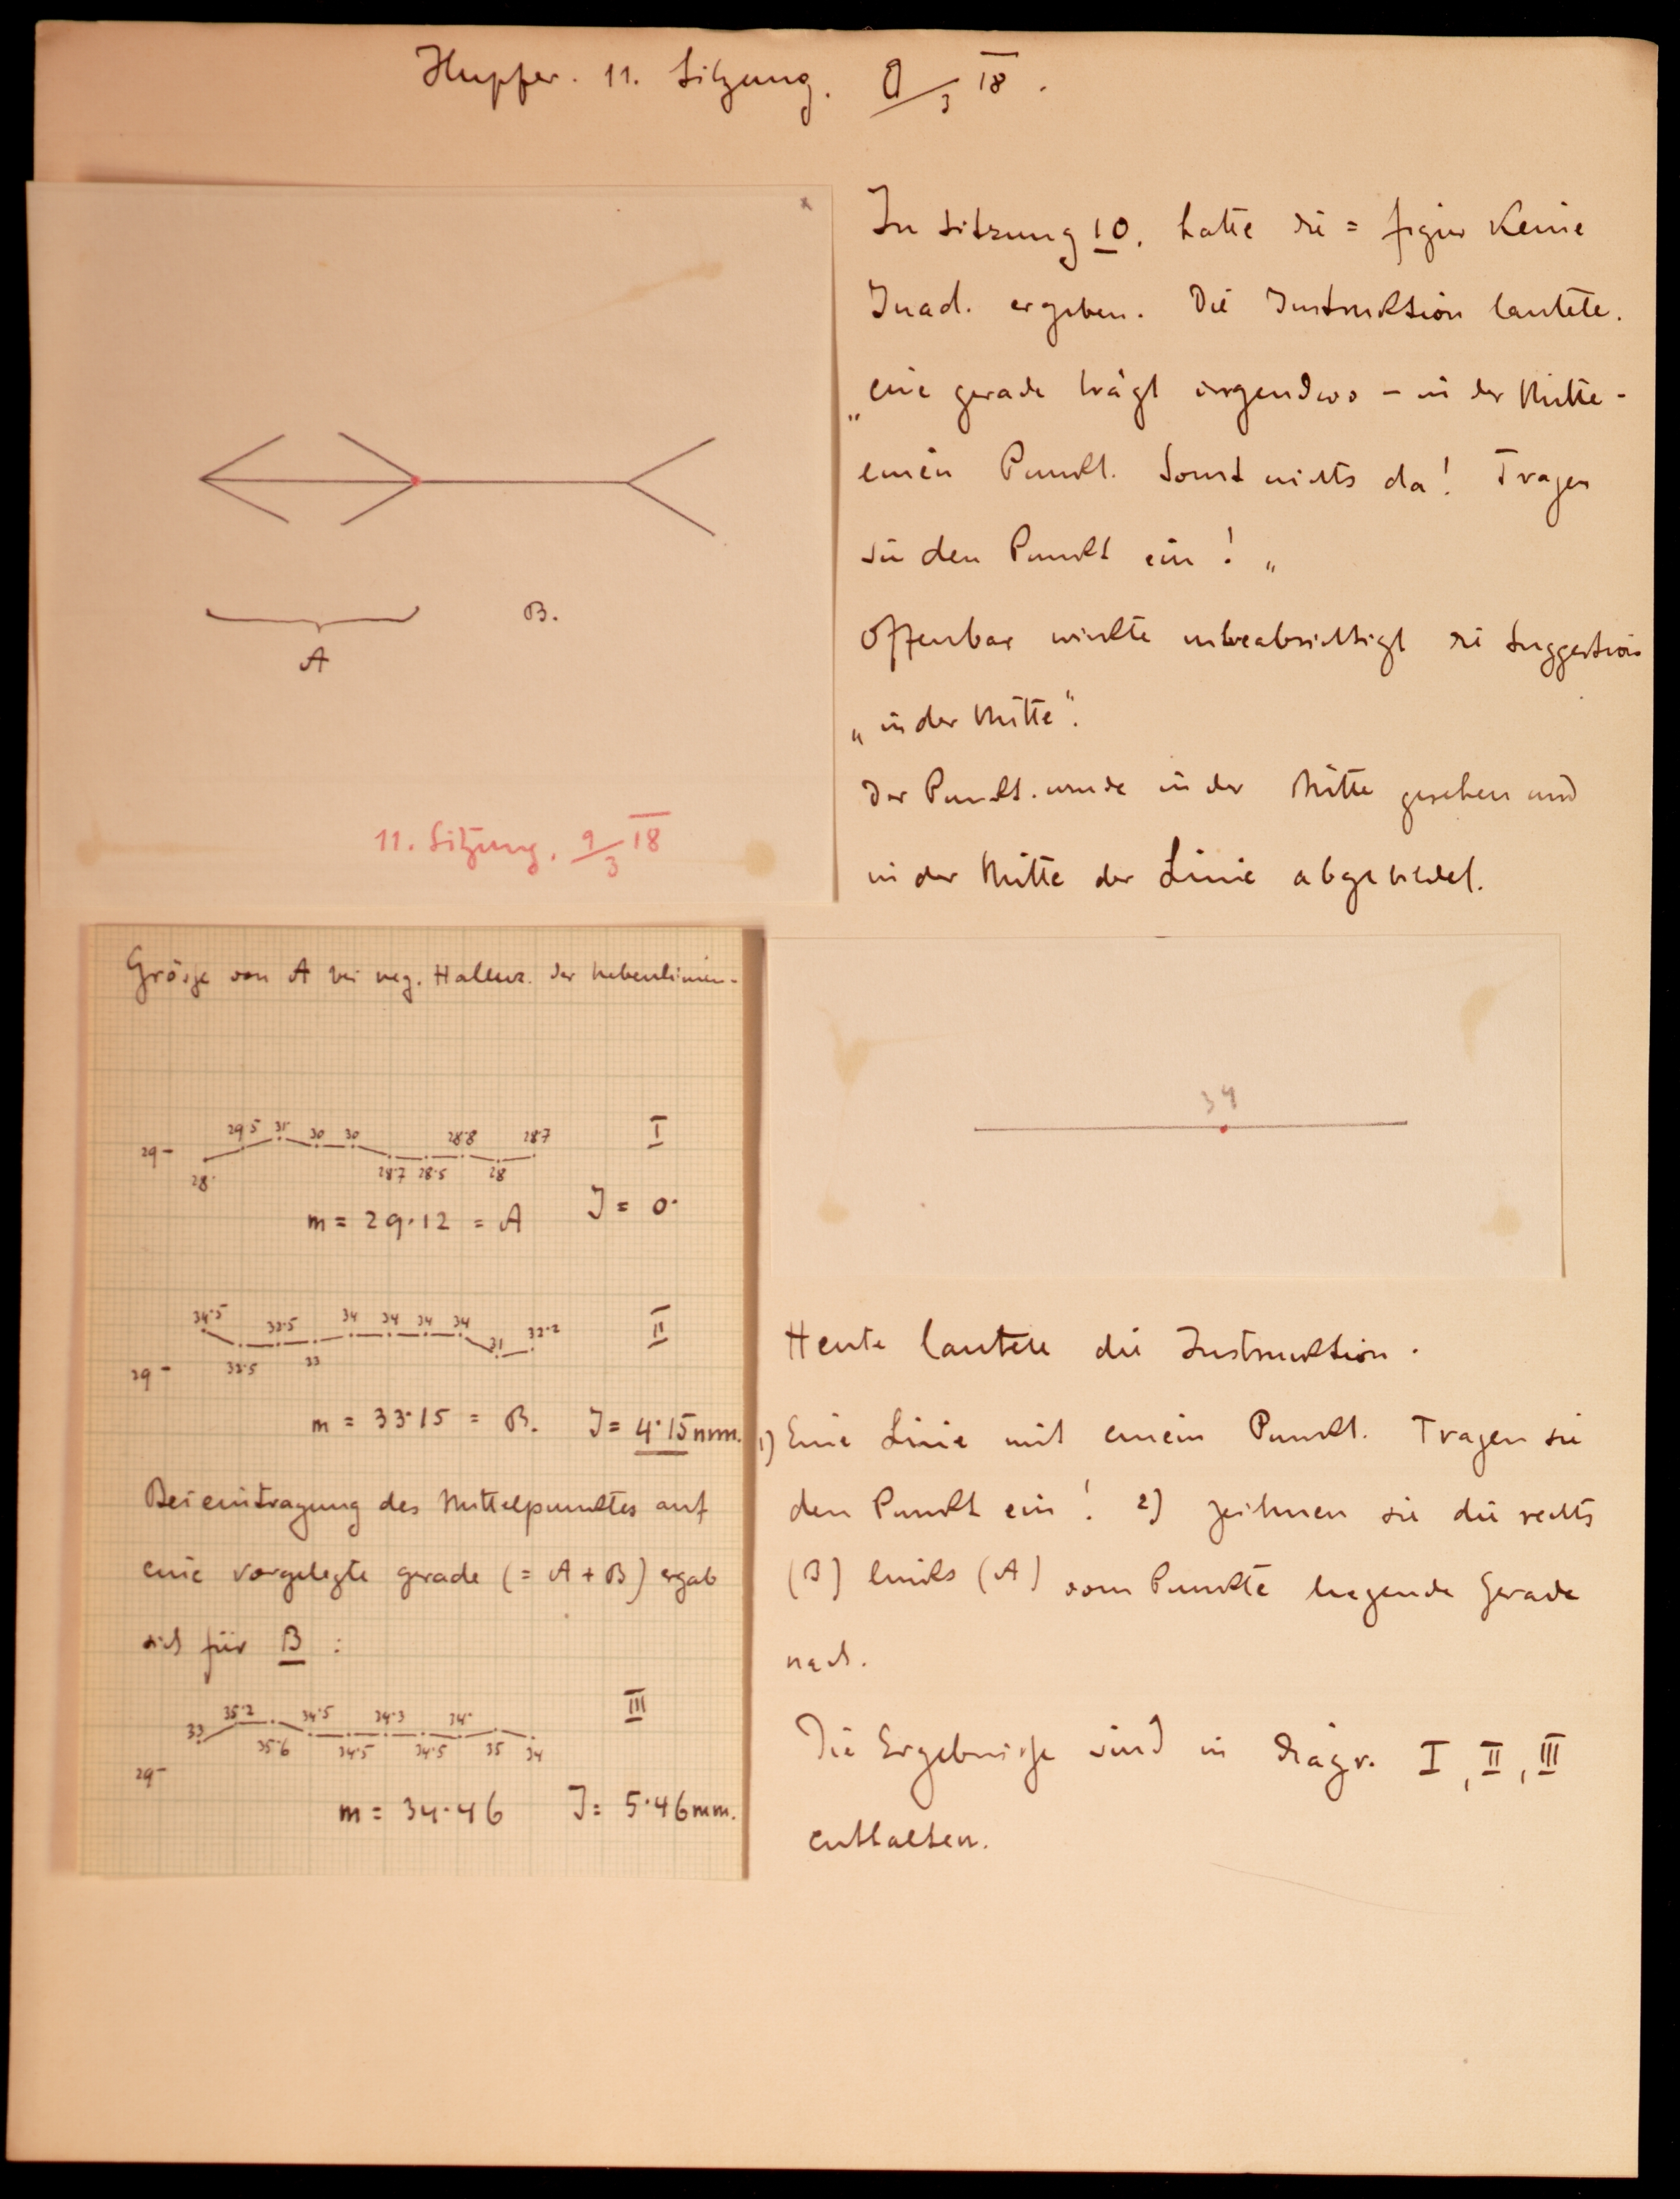 Hupfer. 11. Sitzung. 9/3 18.
In Sitzung 10. hatte die = figur keine
Inad. ergeben. Die Instruktion lautete.
„eine gerade trägt irgendwo – in der Mitte –
einen Punkt. Sonst nichts da! Tragen
sie den Punkt ein! „
Offenbar wirkte unbeabsichtigt die Suggestion
„in der Mitte“.
Der Punkt. wurde in der Mitte gesehen und
in der Mitte der Linie abgebildet.
A
B.
11. Sitzung. 9/3 18
Grösse von A bei neg. Halluz. der Nebenlinien.
29-
28.
29.5 31. 30 30
28.7 28.5
28.8
28
28.7
I
m = 29.12 = A J = 0.
34.5
32.5
32.5
33
34 34 34 34
31
32.2
II
29-
m = 33.15 = B. J = 4.15 mm.
Bei eintragung des Mittelpunktes auf
eine vorgelegte gerade (= A + B) ergab
sich für B :
33
35.2
35.6
34.5
34.5
34.3
34.5
34.
35
34
III
29-
m = 34.46 J = 5.46 mm.
34
Heute lautete die Instruktion.
1) Eine Linie mit einem Punkt. Tragen sie
den Punkt ein! 2) zeichnen sie die rechts
(B) links (A) vom Punkte liegende Gerade
nach.
Die Ergebnisse sind in diagr. I, II, III
enthalten.